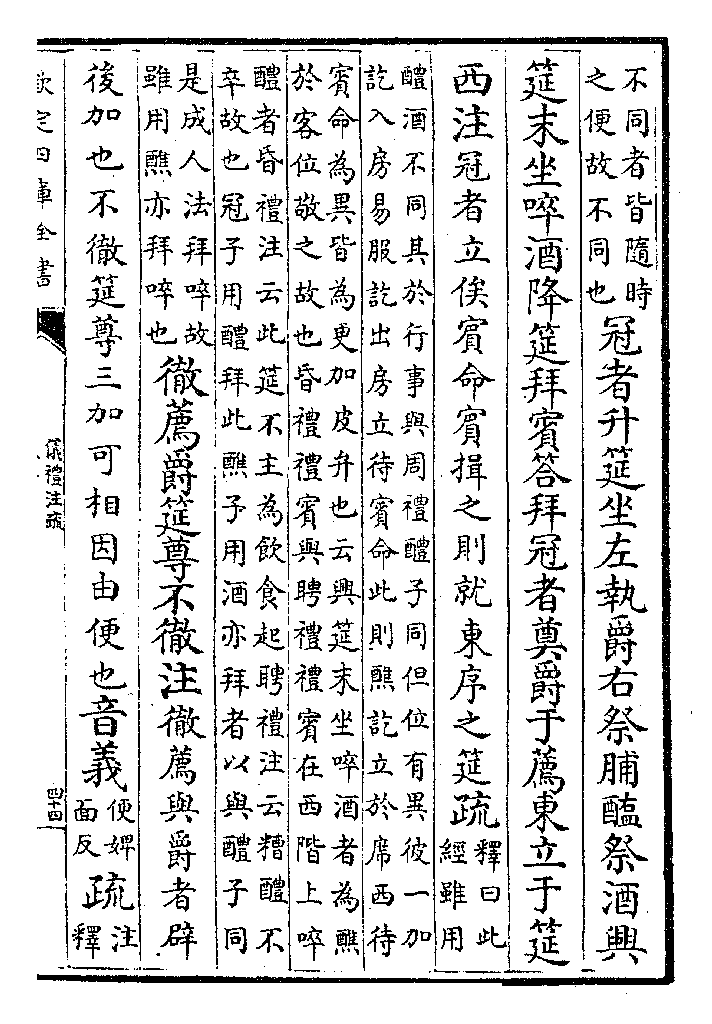 不同者皆隨時
之便故不同也
冠者升筵坐左執爵右祭脯醢祭酒興
筵末坐啐酒降筵拜賓答拜冠者奠爵于薦東立于筵
西注冠者立俟賓命賓揖之則就東序之筵疏
釋曰此
經雖用
醴酒不同其於行事與周禮醴子同但位有異彼一加
訖入房易服訖出房立待賓命此則醮訖立於席西待
賓命為異皆為更加皮弁也云興筵末坐啐酒者為醮
於客位敬之故也昏禮禮賓與聘禮禮賓在西階上啐
醴者昏禮注云此筵不主為飲食起聘禮注云糟醴不
卒故也冠子用醴拜此醮子用酒亦拜者以與醴子同
是成人法拜啐故
雖用醮亦拜啐也
徹薦爵筵尊不徹注徹薦與爵者辟
後加也不徹筵尊三加可相因由便也音義
便婢
面反
疏
注
釋
欽定四庫全書
儀禮注疏
四十四